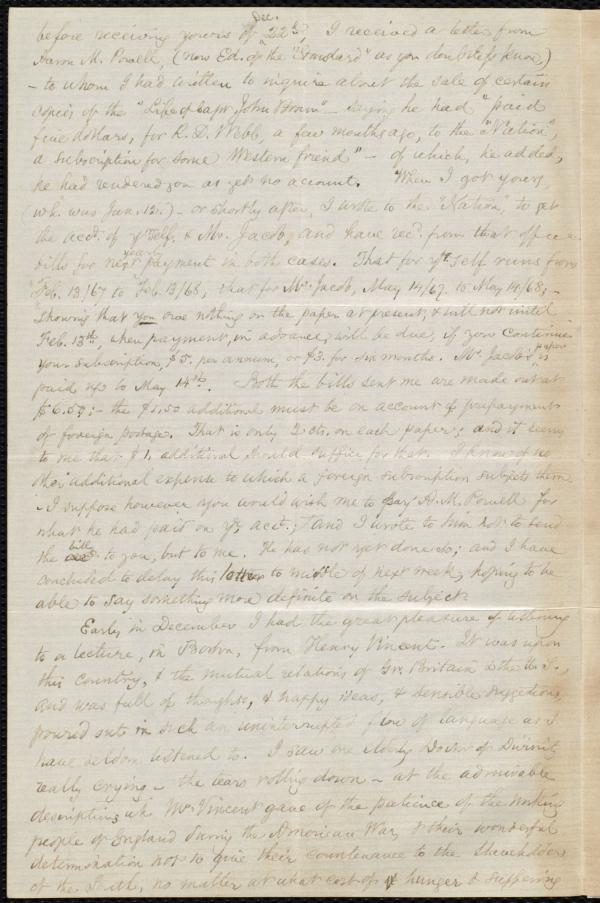 Dec.
before receiving yours of 22d, I received a letter from
Aaron M. Powell, (now Ed. of the "Standard" as you doubtless know)
- to whom I had written to inquire about the sale of certain
copies of the "Life of Capt. John Brown" - saying he had "paid
five dollars, for R. D. Webb, a few months ago, to the "Nation",
a subscription for some Western friend" - of which, he added,
he had rendered you as yet no account. When I got yours,
(wh. was Jan. 12.) - or shortly after, I wrote to the "Nation", to get
the acct. of yrself, & Mr. Jacob, and have recd. from that office
yearly
bills for next payment in both cases. That for yrself runs from
Feb. 13/67 to Feb. 13/68; that for Mr. Jacob, May 14/67. to May 14/68; -
showing that you owe nothing on the paper at present, & will not until
Feb. 13th, when payment, in advance, will be due, if you continue
paper
your subscription, $5. per annum, or $3. for six months. Mr. Jacob's is
paid up to May 14th. Both the bills sent me are made out at
$6.50; - the $1.50 additional must be on account of prepayment
of foreign postage. That is only 2 cts. on each paper; and it seems
to me that $1. additional should suffice for that. I know of no
other additional expense to which a foreign subscription subjects them.
- I suppose however you would wish me to pay A. M. Powell for
what he had paid on yr. acct.; and I wrote to him not to send
bill
the acct. to you, but to me. He has not yet done so; and I have
concluded to delay this letter to middle of next week, hoping to be
able to say something more definite on the subject.
Early in December I had the great pleasure of listening
to a lecture, in Boston, from Henry Vincent. It was upon
this country, & the mutual relations of Gr. Britain & the U. S.,
and was full of thoughts, & happy ideas, & sensible suggestions,
poured out in such an uninterrupted flow of language as I
have seldom listened to. I saw one elderly Doctor of Divinity
really crying - the tears rolling down - at the admirable
descriptions wh. Mr. Vincent gave of the patience of the working
people of England during the American War, & their wonderful
determination not to give their countenance to the slaveholders
of the South, no matter at what cost of hunger & suffering